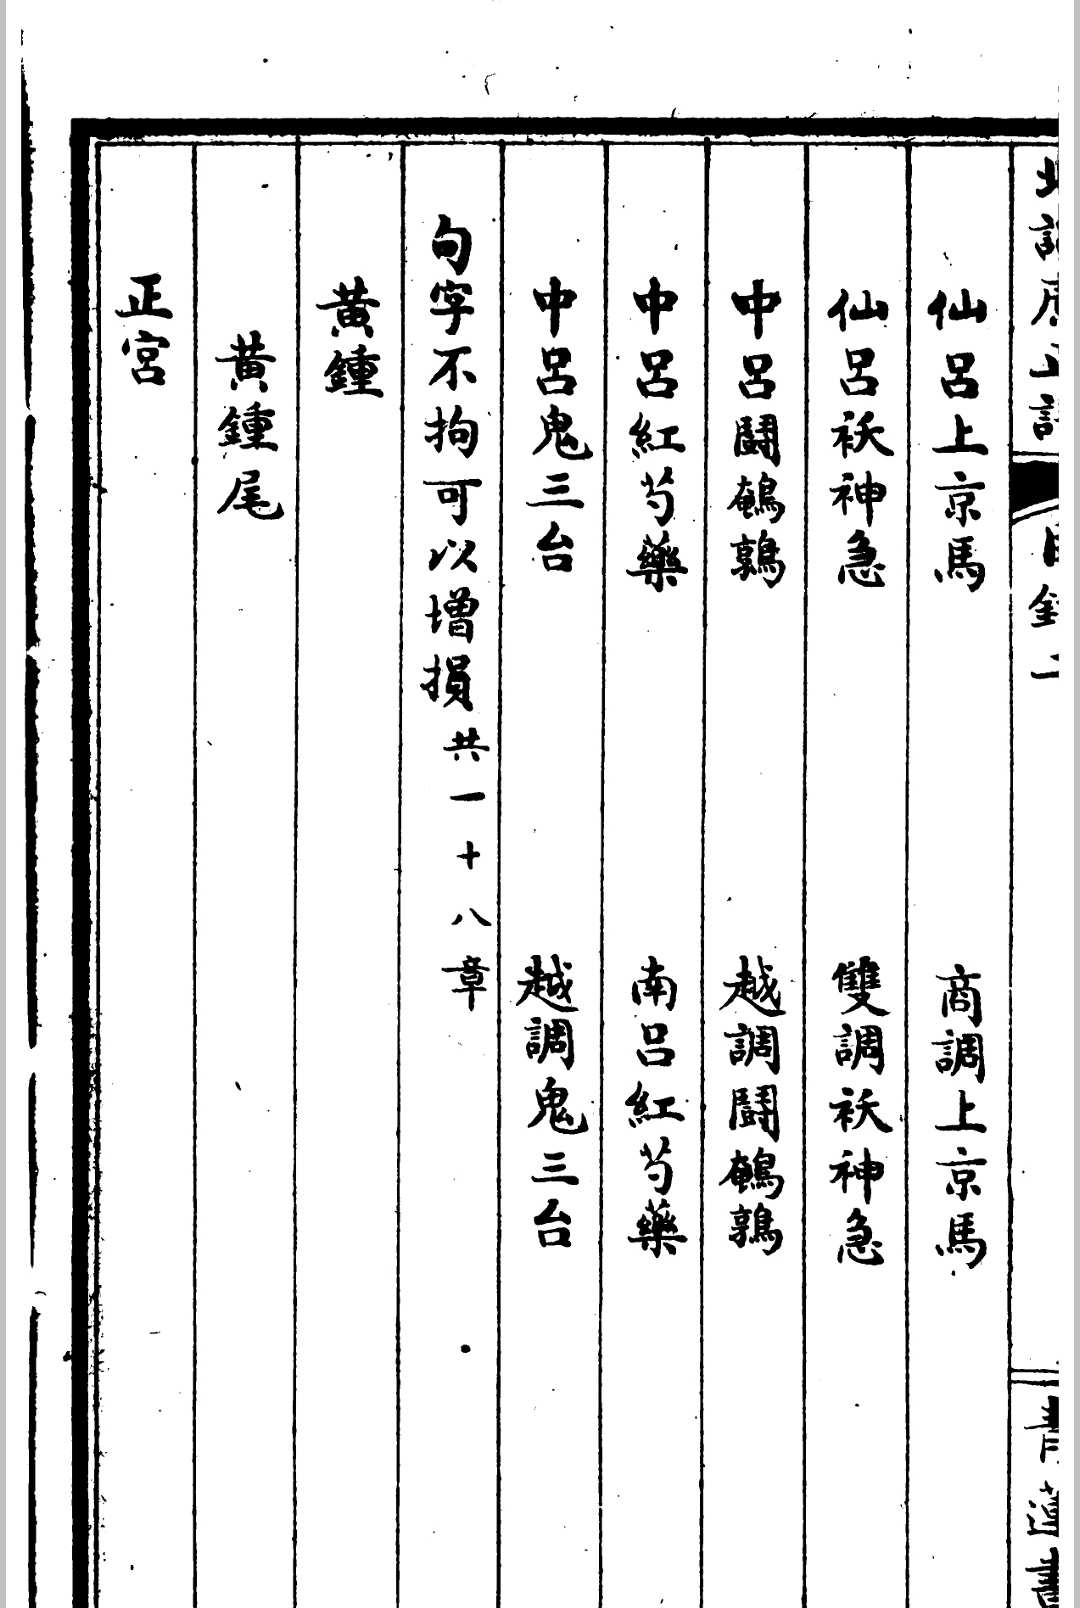 仙呂上京馬　商調上京馬
仙呂袄神急　雙調袄神急
中呂鬪鵪鶉　越調鬪鵪鶉
中呂紅芍藥　南呂紅芍藥
中呂鬼三台　越調鬼三台
句字不拘可以增損共一十八章
黃鍾
黃鍾尾
正宮